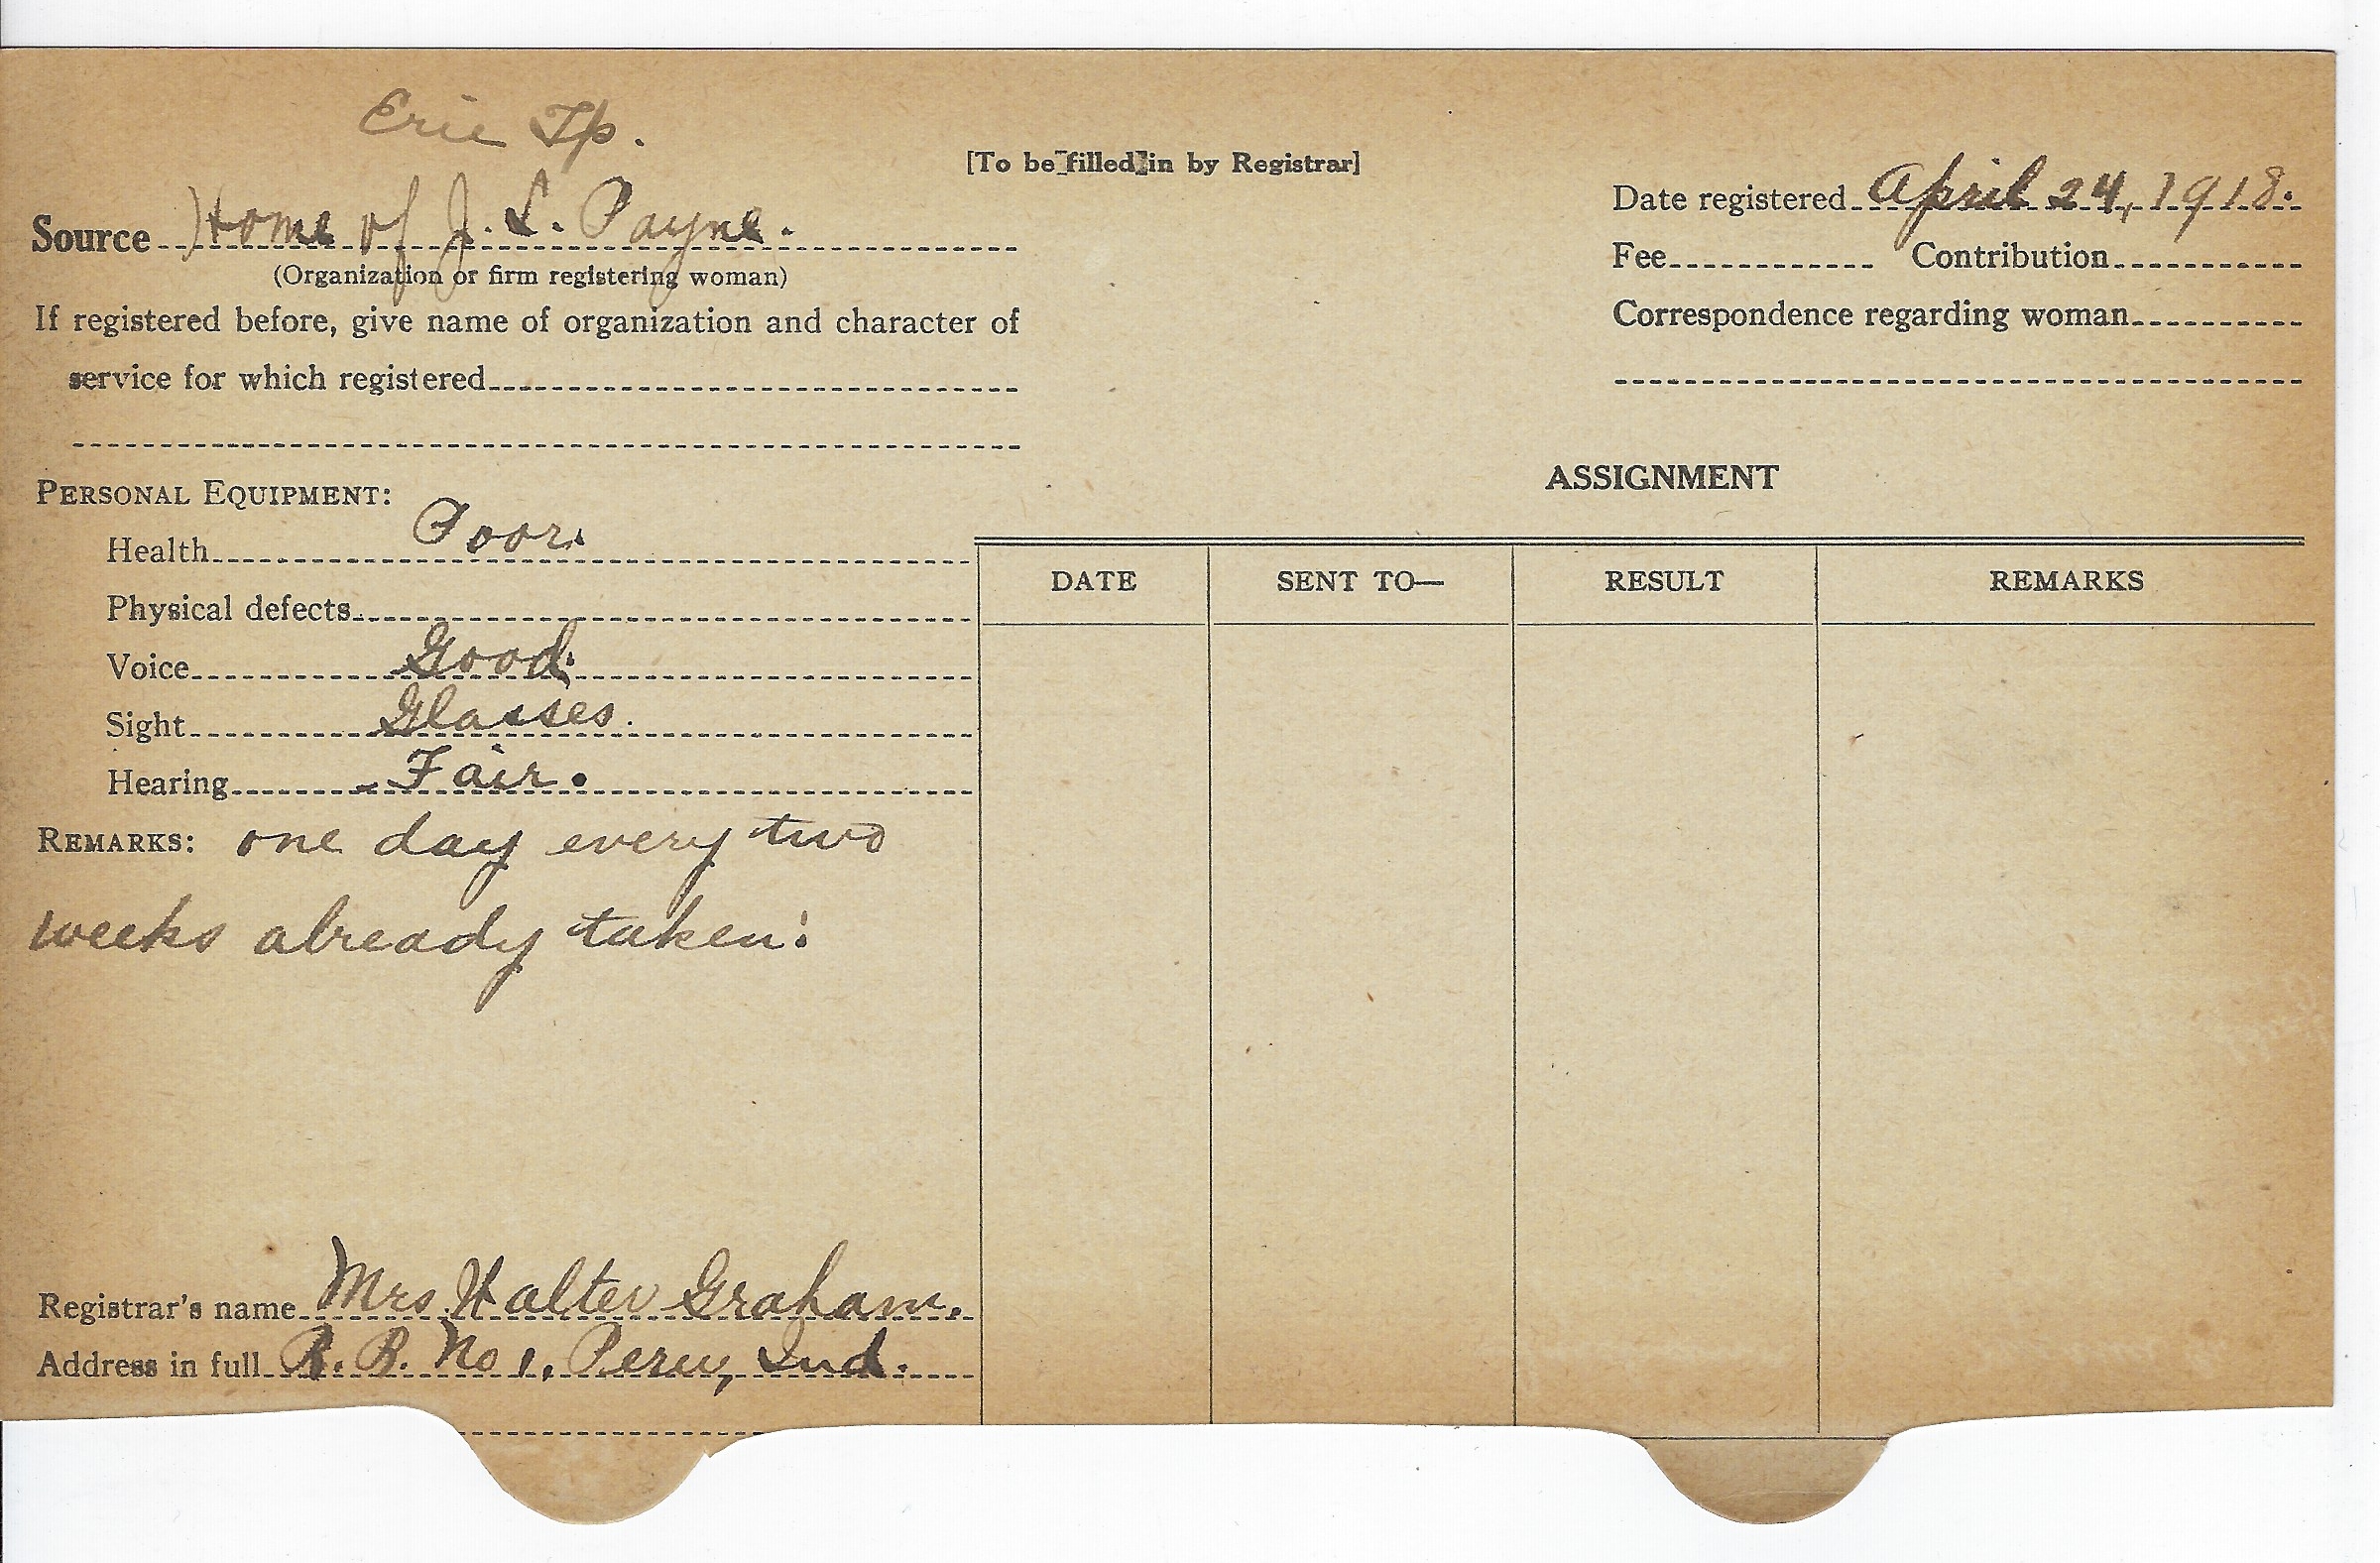 Erie Tp.
[To be filled in by Registrar]
Source Home of J. L. Payne.
(Organization or firm registering woman)
If registered before, give name of organization and character of
service for which registered
Date registered April 24, 1918.
Fee Contribution
Correspondence regarding woman
PERSONAL EQUIPMENT:
Health Poor.
Physical defects
Voice Good.
Sight Glasses.
Hearing Fair.
REMARKS: one day every two
weeks already taken.
Registrar's name Mrs. Walter Graham.
Address in full R. R. No 1, Peru, Ind.
ASSIGNMENT
DATE SENT TO— RESULT REMARKS